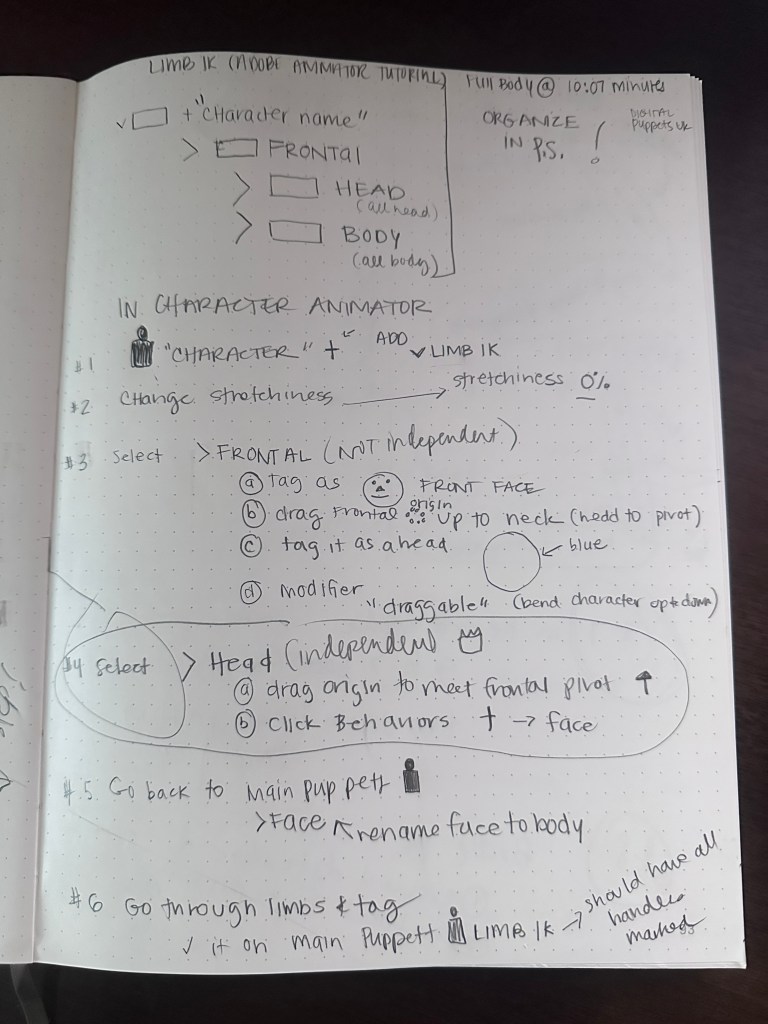 LIMB IK (ADOBE ANIMATOR TUTORIAL) Full Body @ 10:07 minutes
+ "CHaracter name"
ORGANIZE IN P.S. !
DIGITAL Puppets UK
> FRONTAL
> HEAD
(all head)
> BODY
(all body)
IN CHARACTER ANIMATOR
#1 "CHARACTER" + ADD ✓ LIMB IK
#2 CHange stretchiness → stretchiness 0%
#3 Select > FRONTAL (NOT independent)
(a) tag as FRONT FACE
(b) drag Frontal origin up to neck (head to pivot)
(c) tag it as a head ← blue
(d) modifier
"draggable" (bend character up & down)
#4 Select > Head (independent)
(a) drag origin to meet frontal pivot ↑
(b) click Behaviors + → face
#5 Go back to main puppett
> Face ↖ rename face to body
#6 Go through limbs & tag
✓ it on main Puppett LIMB IK → should have all
handles
marked